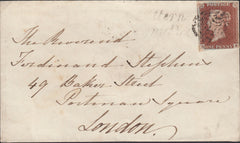 The Reverend
Ferdinand Stephens
49 Baker Street
Portman Square
London.
ONE PENNY